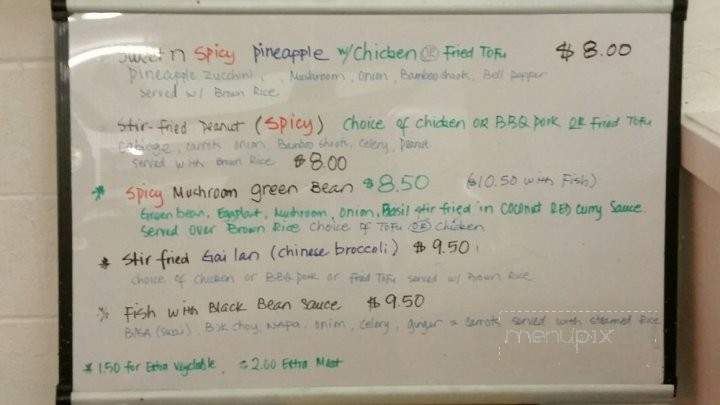 Sweet n Spicy pineapple w/Chicken OR Fried Tofu $8.00
pineapple zucchini, Mushroom, Onion, Bamboo shoots, Bell Pepper
served w/ Brown Rice
Stir-fried Peanut (Spicy) Choice of chicken OR BBQ pork OR Fried Tofu
Cabbage, carrots onion, Bamboo shoots, celery, peanut
served with Brown Rice $8.00
Spicy Mushroom green Bean $8.50 ($10.50 with Fish)
Green bean, Eggplant, Mushroom, onion, Basil stir fried in COCONUT RED curry Sauce
served over Brown Rice choice of Tofu OR Chicken
* Stir fried Gai lan (chinese broccoli) $9.50
choice of chicken or BBQ pork or Fried Tofu served w/ Brown Rice
Fish with Black Bean sauce $9.50
BASA (Swai), Bok choy, NAPA, onion, celery, ginger & carrots served with steamed Rice
menupix
* 1.50 for Extra Vegetable, 2.00 Extra Meat